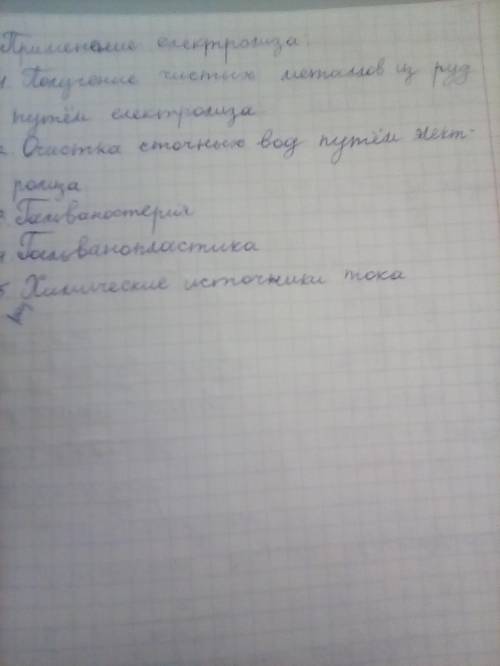 Применение електролиза:
1. Получение чистых металлов из руд
путём електролиза
2. Очистка сточных вод путём элект-
ролиза
3. Гальваностерія
4. Гальванопластика
5. Химические источники тока